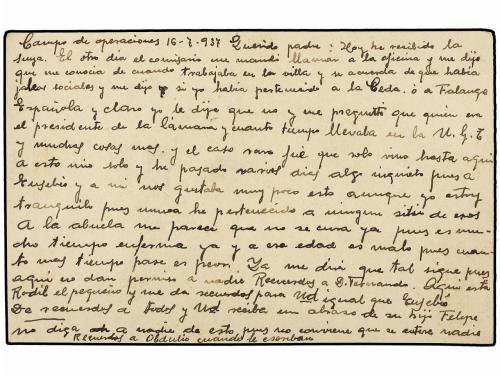 Campo de operaciones 16-7-937 Querido padre: Hoy he recibido la
suya. El otro dia el comisario me mandó llamar a la oficina y me dijo
que me conocia de cuando trabajaba en la villa y si acuerda de que habia
jaleos sociales y me dijo si yo habia pertenecido a la Ceda. ó a Falange
Española y claro yo le dije que no y me preguntó que quien era
el presidente de la Cámara y cuanto tiempo llevaba en la U.G.T
y muchas cosas mas. y el caso raro fué que solo vino hasta aqui
a esto vino solo y he pasado varios dias algo inquieto pues a
Eusebio y a mi nos gustaba muy poco esto aunque yo estoy
tranquilo pues nunca he pertenecido a ningun sitio de esos
A la abuela me parece que no se cura ya pues es mu-
cho tiempo enferma ya y a esa edad es malo pues cuan-
to mas tiempo pase es peor. Ya me dirá que tal sigue pues
aqui no dan permiso a nadie Recuerdos a D. Fernando. Aqui esta
Rodil el pequeño y me da recuerdos para Ud igual que Eusebio
De recuerdos a todos y Ud reciba un abrazo de su hijo Felipe
no diga a nadie de esto, pues no conviene que se entere nadie
Recuerdos a Obdulio cuando le escriban